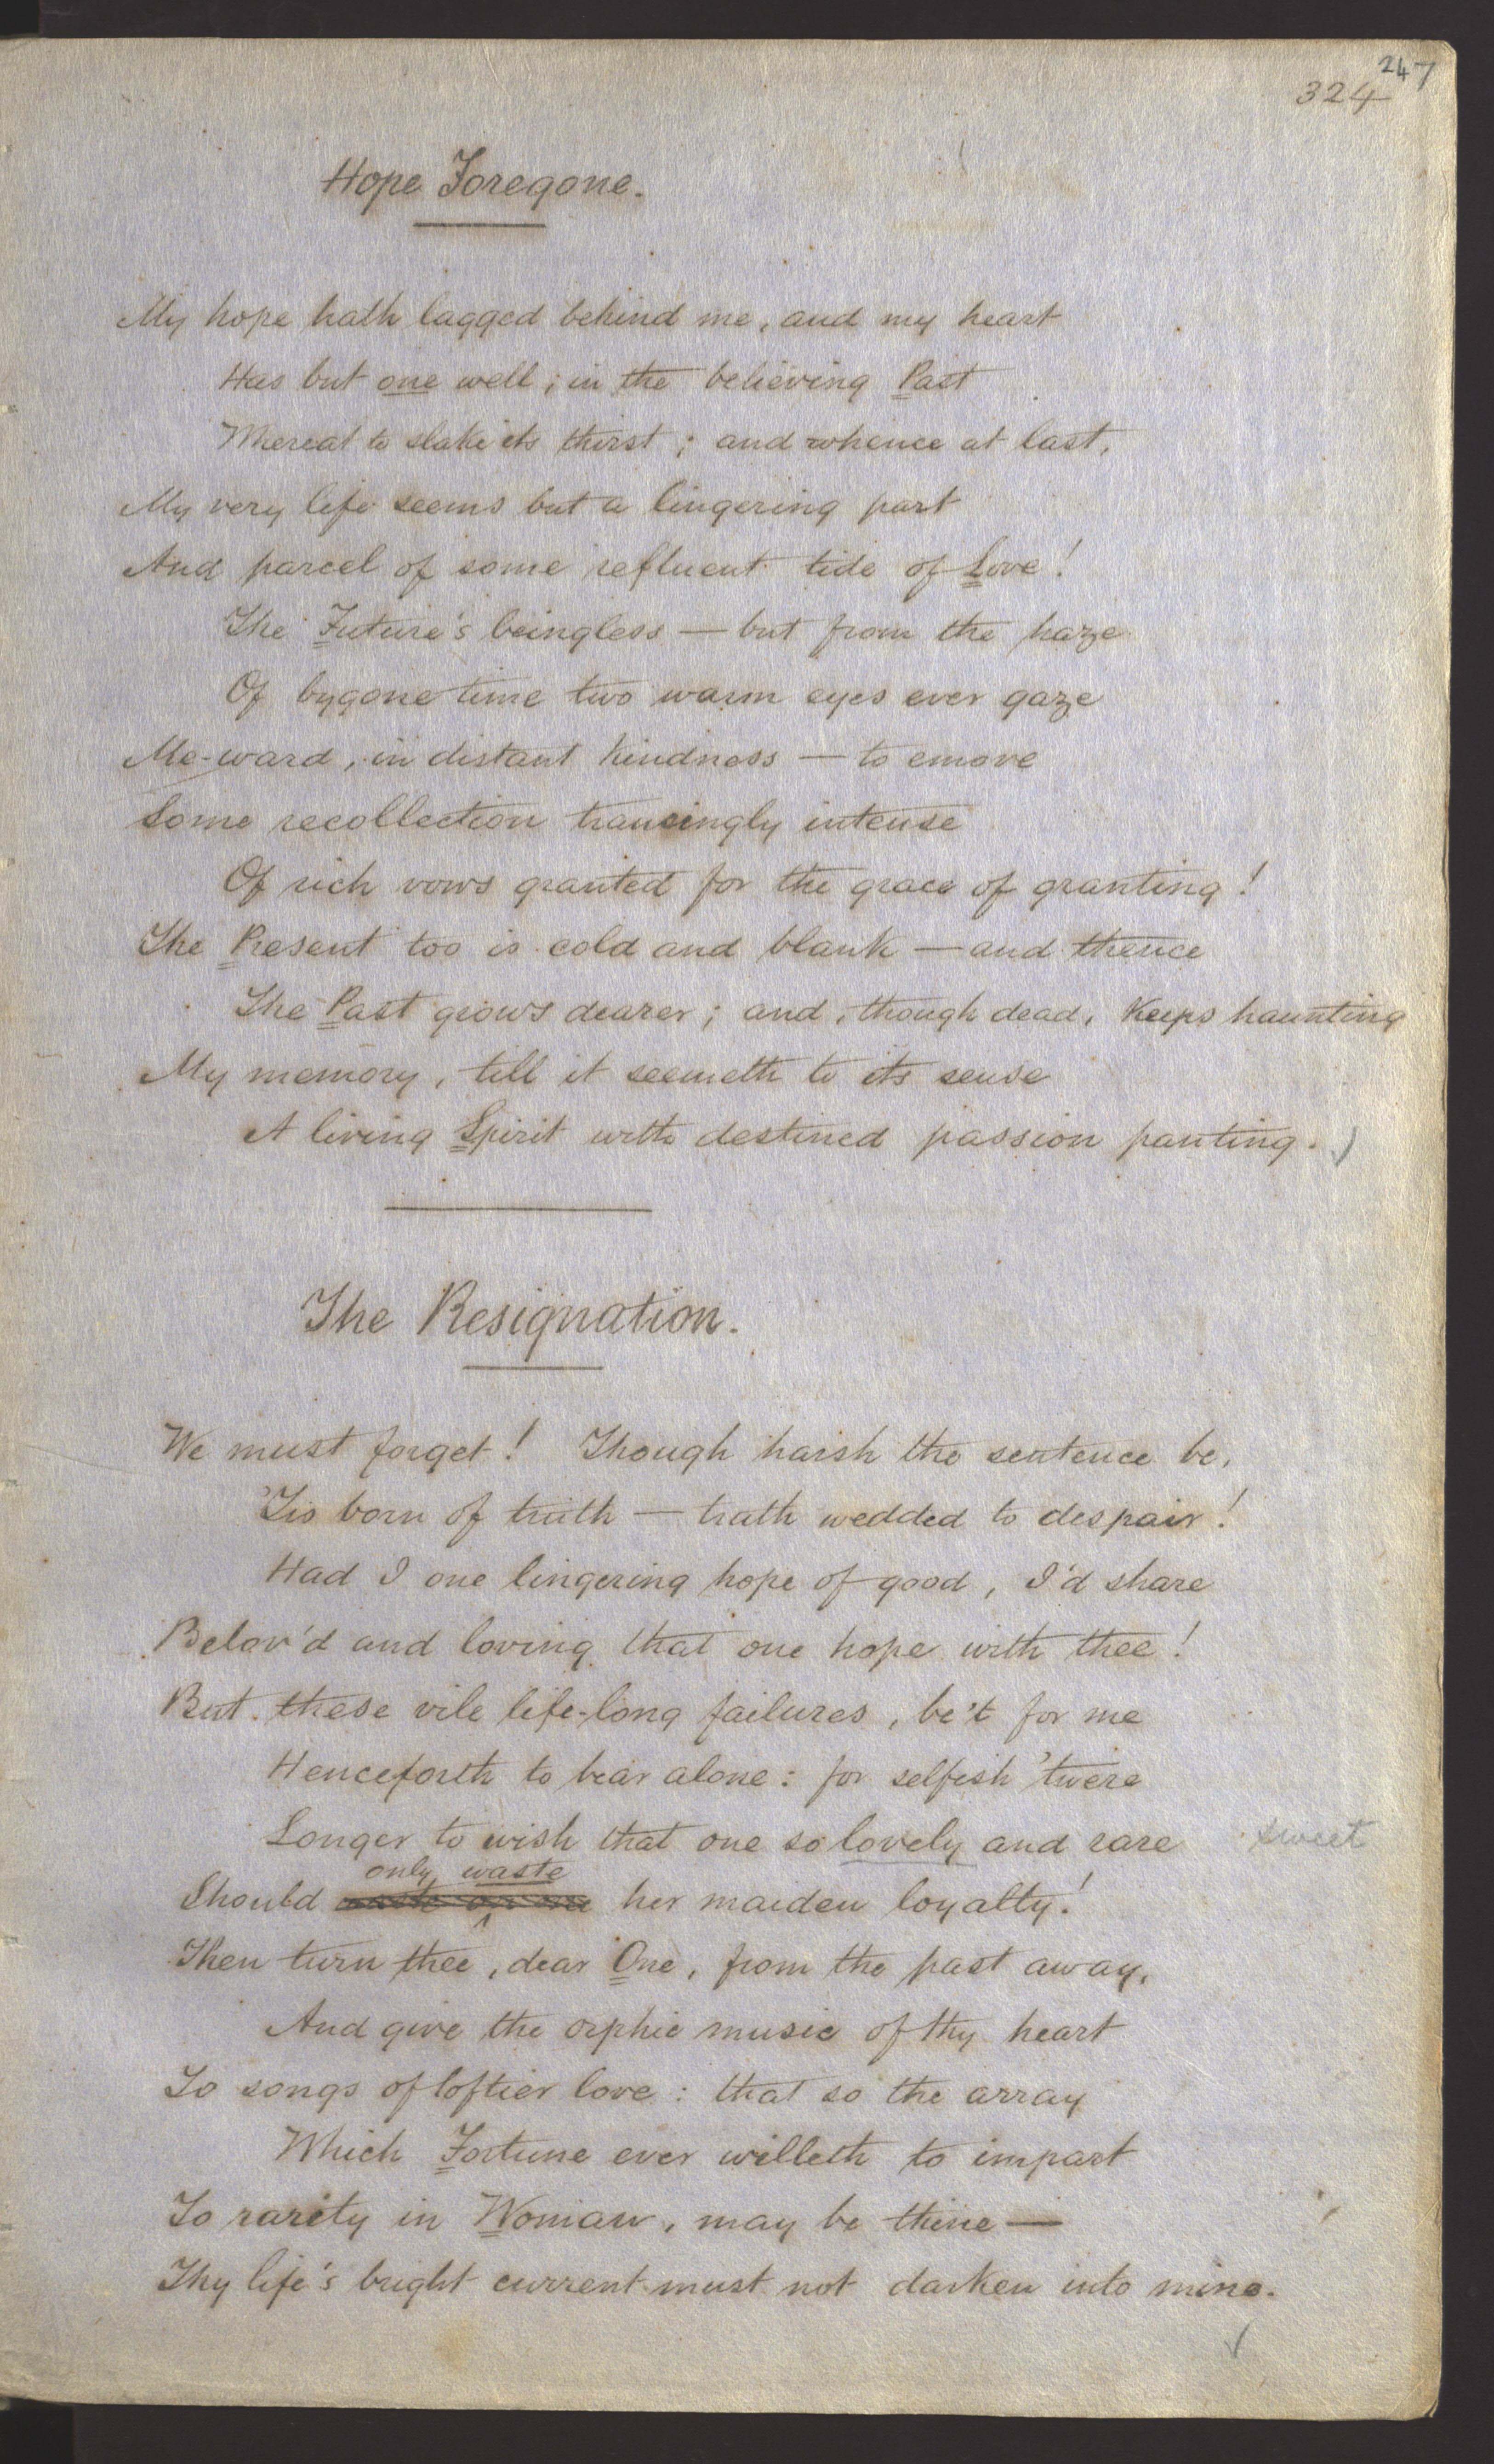 247
324
Hope Foregone.
My hope hath lagged behind me, and my heart
Has but one well; in the believing Past
Whereat to slake its thirst; and whence at last,
My very life seems but a lingering part
And parcel of some refluent tide of Love!
The Future's beingless — but from the haze
Of bygone time two warm eyes ever gaze
Me-ward, in distant kindness — to emove
Some recollection trancingly intense
Of rich vows granted for the grace of granting!
The Present too is cold and blank — and thence
The Past grows dearer; and, though dead, keeps haunting
My memory, till it seemeth to its sense
A living Spirit with destined passion panting.
The Resignation.
We must forget! Though harsh the sentence be,
'Tis born of truth — truth wedded to despair!
Had I one lingering hope of good, I'd share
Belov'd and loving that one hope with thee!
But these vile life-long failures, be't for me
Henceforth to bear alone: for selfish 'twere
Longer to wish that one so lovely and rare sweet
only waste
Should waste on me her maiden loyalty!
Then turn thee, dear One, from the past away,
And give the orphic music of thy heart
To songs of loftier love: that so the array
Which Fortune ever willeth to impart
To rarity in Woman, may be thine —
Thy life's bright current must not darken into mine.